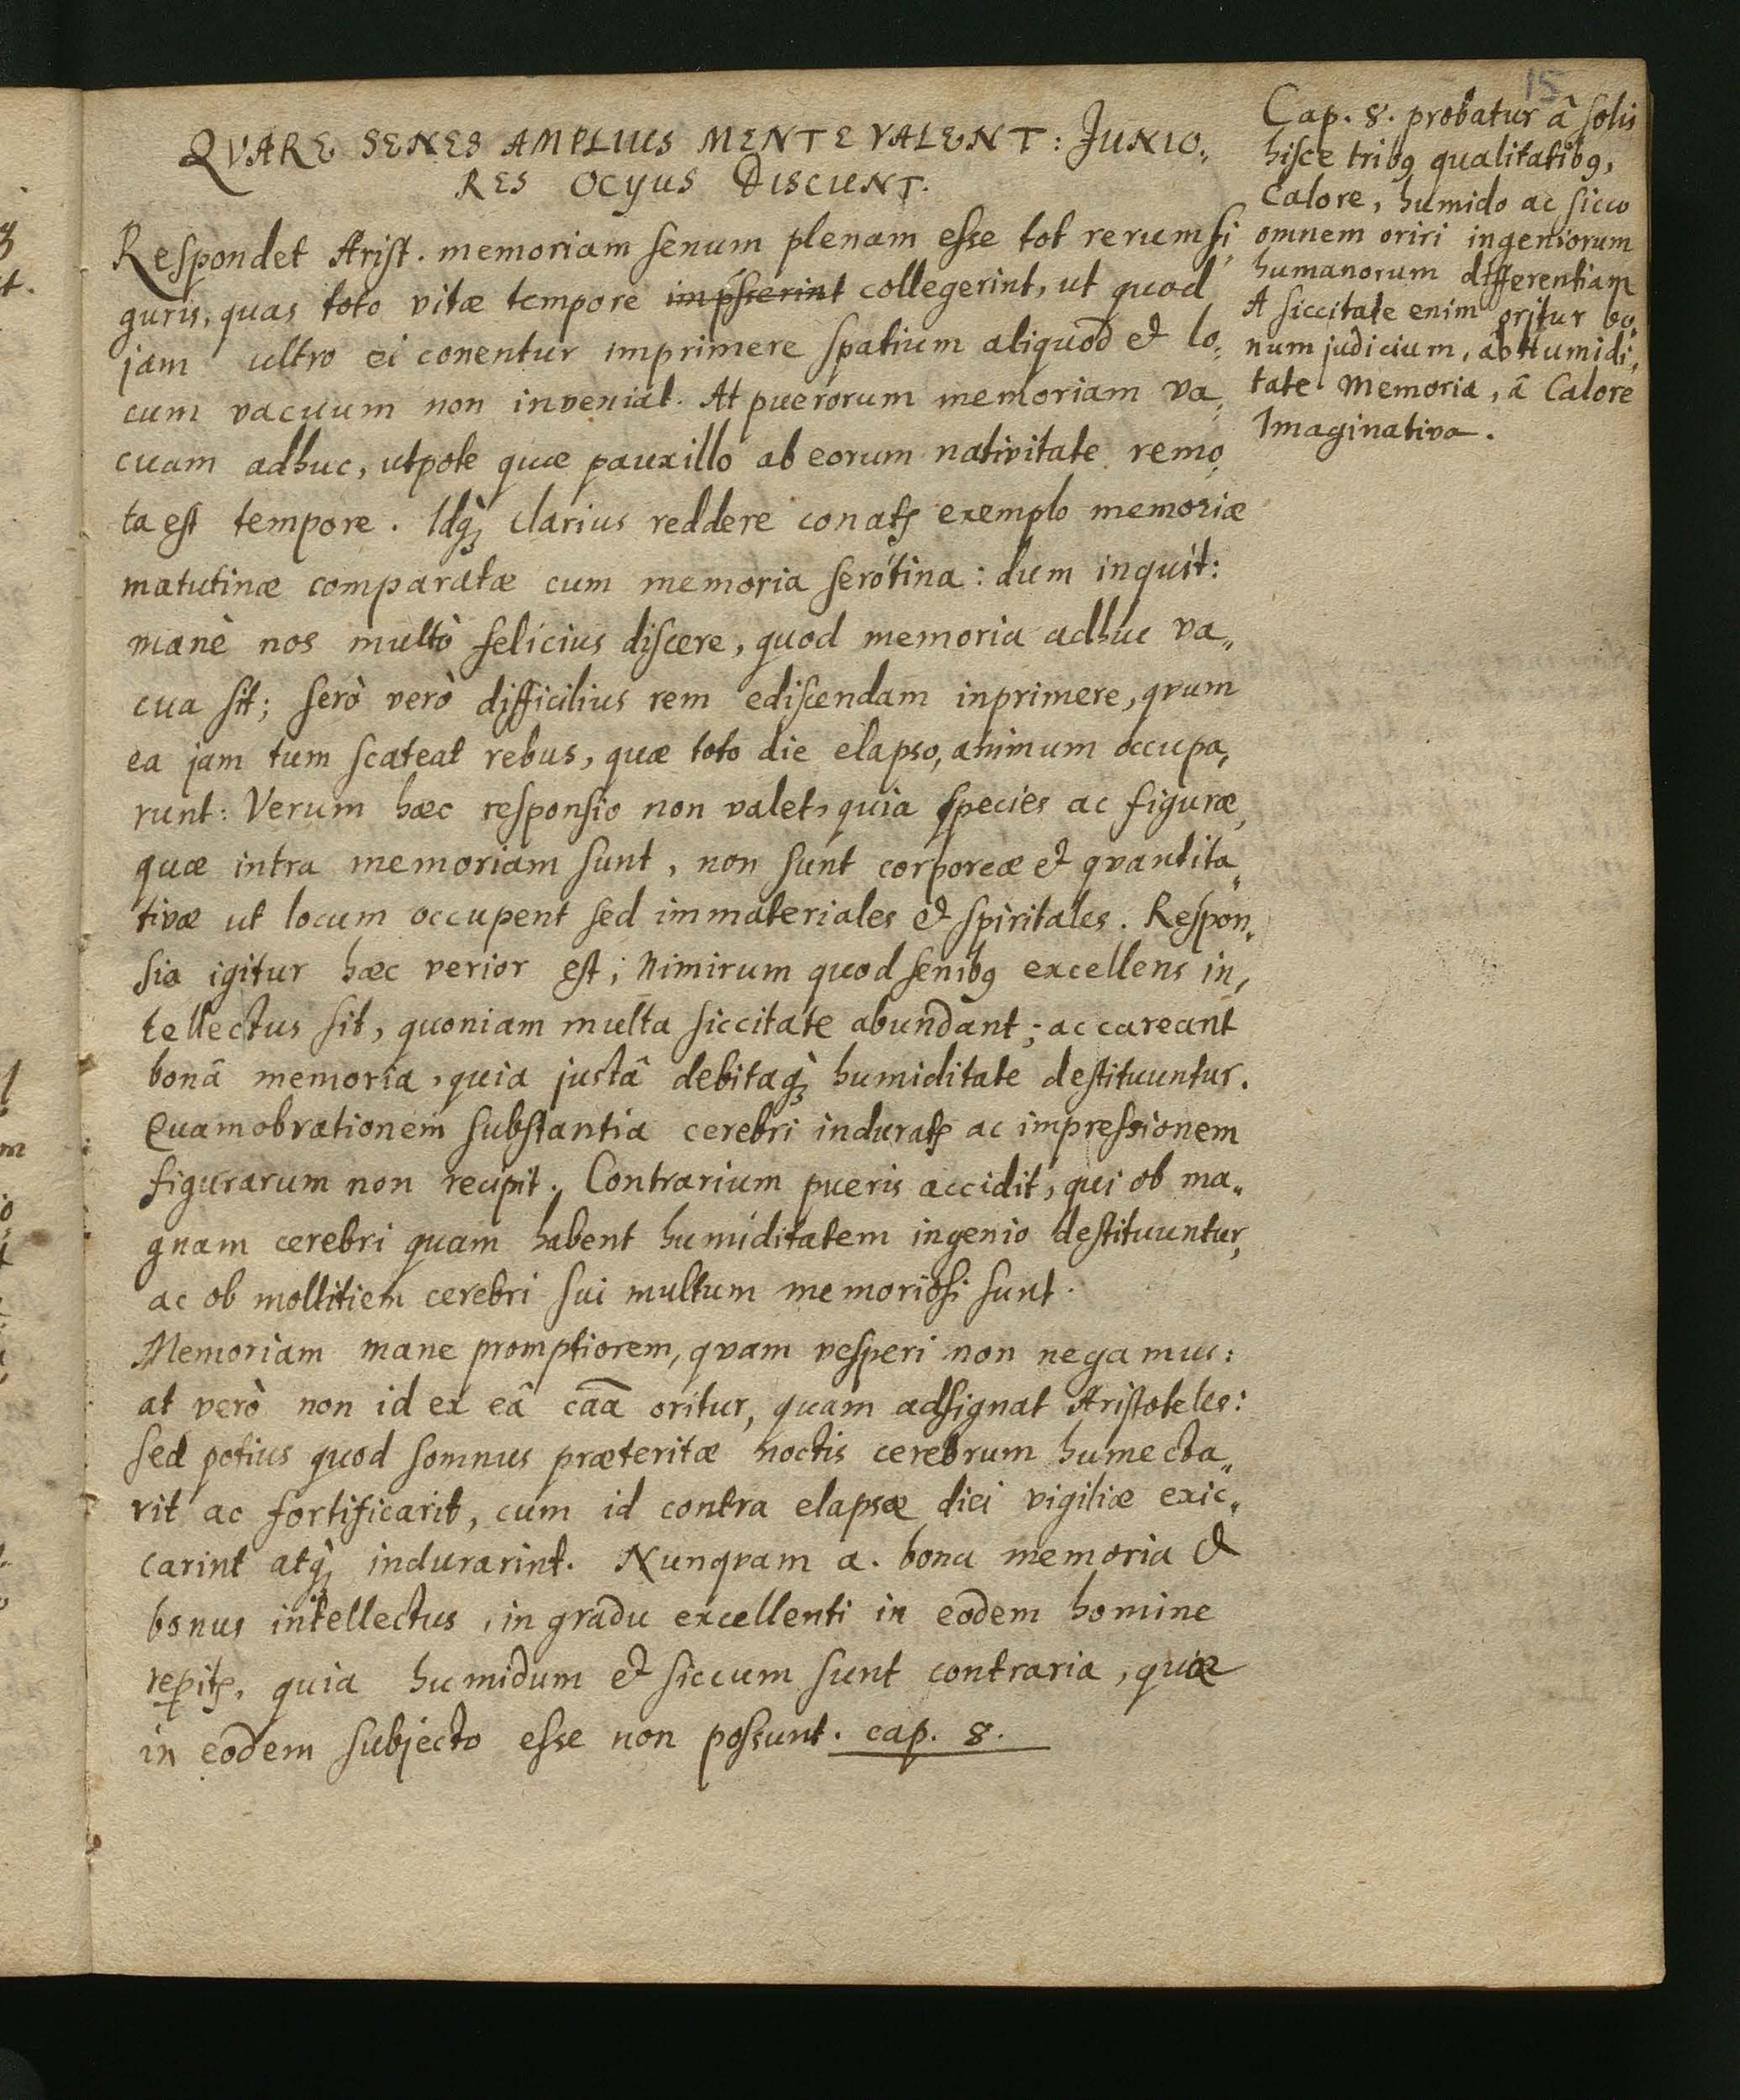 15
QVARE SENES AMPLIUS MENTE VALENT: JUNIO„
RES OCYUS DISCUNT.
Respondet Arist. memoriam senum plenam esse tot rerum fi„
guris, quas toto vitæ tempore collegerint, ut quod
jam ultro ei conentur imprimere spatium aliquod et lo„
cum vacuum non inveniat. At puerorum memoriam va„
cuam adhuc, utpote quæ pauxillo ab eorum nativitate remo„
ta est tempore. Idq₃ clarius reddere conatꝭ exemplo memoriæ
matutinæ comparatæ cum memoria serotina: dum inquit:
manè nos multò felicius discere, quod memoria adhuc va„
cua sit; serò verò difficilius rem ediscendam inprimere, qvum
ea jam tum scateat rebus, quæ toto die elapso, animum occupa„
runt: Verum hæc responsio non valet, quia species ac figuræ,
quæ intra memoriam sunt, non sunt corporeæ et qvantita„
tivæ ut locum occupent sed immateriales et spiritales. Respon„
sio igitur hæc verior est; Nimirum quod senibꝯ excellens in„
tellectus sit, quoniam multa siccitate abundant; ac careant
bonâ memoria, quia justâ debitaq₃ humiditate destituuntur.
Quamobrationem substantia cerebri induratꝭ ac impressionem
figurarum non recipit. Contrarium pueris accidit, qui ob ma„
gnam cerebri quam habent humiditatem ingenio destituuntur,
ac ob mollitiem cerebri sui multum memoriosi sunt.
Memoriam mane promptiorem, qvam vesperi non negamus:
at verò non id ex eâ cāā oritur, quam adsignat Aristoteles:
sed potius quod somnus præteritæ noctis cerebrum humecta„
rit ac fortificarit, cum id contra elapsæ diei vigiliæ exic„
carint atq₃ indurarint. Nunqvam a. bona memoria et
bonus intellectus, in gradu excellenti in eodem homine
reꝑitꝭ, quia humidum et siccum sunt contraria, quæ
in eodem subjecto esse non possunt. cap. 8.
Cap. 8. probatur â solis
hisce tribꝯ qualitatibꝯ,
Calore, humido ac sicco
omnem oriri ingeniorum
humanorum differentiam
A siccitate enim oritur bo„
num judicium, ab Humidi„
tate Memoria, â Calore
Imaginativa.